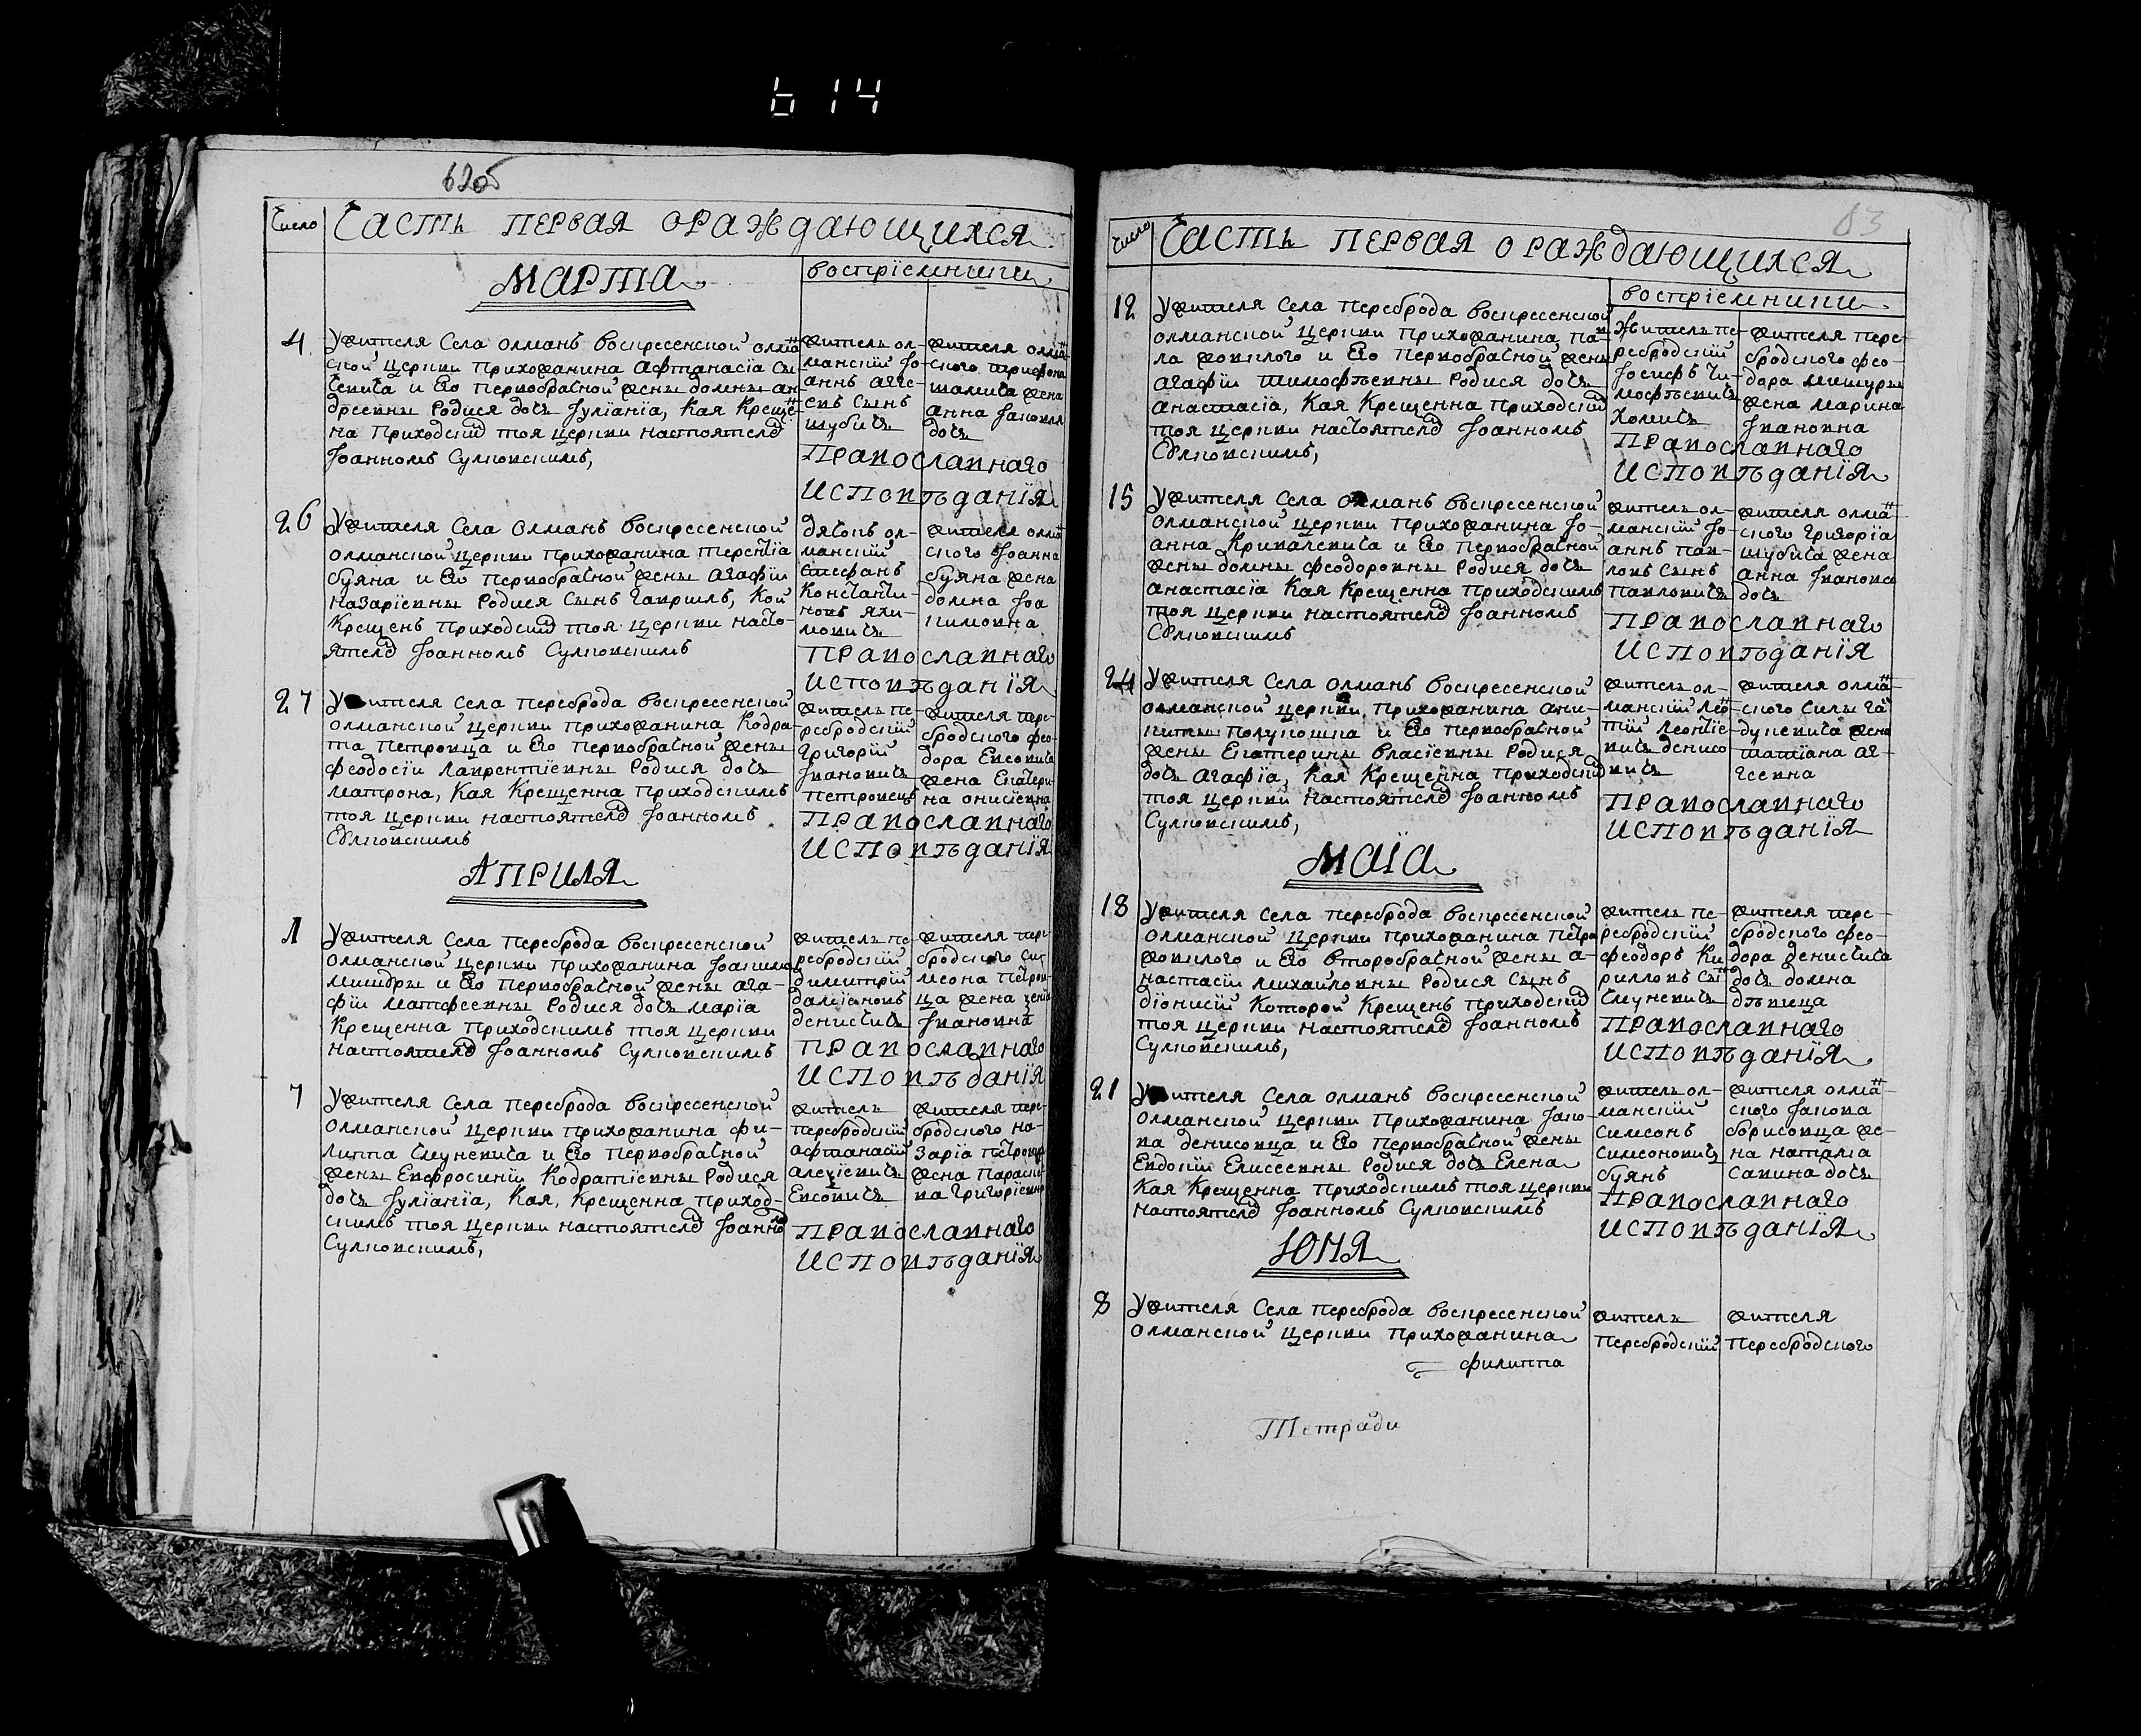 614
62об
Число
Часть первая о раждающихся
Марта
воспріемники
4
У жителя села Олманъ Воскресенской Олман
ской церкви прихожанина Афтанасіа Сы
чевича и его первобрачной жены Домны Ан
дреевны родися дочь Іуліаніа, кая креще
на приходскимъ тоя церкви настоятелемъ
Іоанномъ Сулковскимъ,
житель ол-
манскій Іо-
аннъ Агге-
евъ сынъ
Шубичъ
жителя олман-
ского
жена
Анна
дочь
Православнаго
исповѣданія
26
У жителя села Олманъ Воскресенской
Олманской церкви прихожанина Терентіа
Буяна и его первобрачной жены Агафіи
Назаріевны родися сынъ Гавріилъ, кой
крещенъ приходскимъ тоя церкви насто-
ятелемъ Іоанномъ Сулковскимъ
дячокъ ол-
манскій
Стефанъ
Константи-
новъ Яки-
мовичъ
жителя олман
ского Іоанна
Буяна жена
Домна Іоа
кимовна
Православнаго
исповѣданія
27
У жителя села Переброда Воскресенской
Олманской церкви прихожанина Кодра-
та Петровца и его первобрачной жены
Феодосіи Лаврентіевны родися дочь
Матрона, кая крещенна приходскимъ
тоя церкви настоятелемъ Іоанномъ
Сулковскимъ
житель пе-
ребродскій
Григорій
Іванович
Петровецъ
жителя пере-
бродского Фео-
дора Евсовича
жена Екатери-
на Онисіевна
Православнаго
исповѣданія
Априля
1
У жителя села Переброда Воскресенской
Олманской церкви прихожанина Іоакима
Мишуры и его первобрачной жены Ага-
фіи Матфеевны родися дочь Маріа
крещенна приходскимъ тоя церкви
настоятелемъ Іоанномъ Сулковскимъ
житель пе-
ребродскій
Димитрій
Даміановъ
Денисичъ
жителя пере-
бродского Си-
меона Петров-
ца жена
Івановна
Православнаго
исповѣданія
7
У жителя села Переброда Воскресенской
Олманской церкви прихожанина Фи-
липпа Смуневича и его первобрачной
жены Евфросиніи Кодратіевны родися
дочь Іуліаніа, кая, крещенна приход-
скимъ тоя церкви настоятелемъ Іоанномъ
Сулковскимъ,
житель
перебродскій
Афтанасій
Алезіевичъ
Евсовичъ
жителя пере-
бродского На-
заріа Петровца
жена Параске-
ва Григоріевна
Православнаго
исповѣданія
83
Число
Часть первая о раждающихся
воспріемники
12
У жителя села Переброда Воскресенской
Олманской церкви прихожанина Пав-
ла Ковплого и его первобрачной жены
Агафіи Тимофѣевны родися дочь
Анастасіа, кая крещенна приходскимъ
тоя церкви настоятелемъ Іоанномъ
Сулковскимъ,
житель пе-
ребродскій
Іосифъ Ти-
мофѣевичъ
Хомичъ
жителя пере-
бродского Фео-
дора Мишуры
жена Марина
Івановна
Православнаго
исповѣданія
15
У жителя села Олманъ Воскресенской
Олманской церкви прихожанина Іо-
анна Кривалевича и его первобрачной
жены Домны Феодоровны родися дочь
Анастасіа кая крещенна приходскимъ
тоя церкви настоятелемъ Іоанномъ
Сулковскимъ
житель ол-
манскій Іо-
аннъ Пав-
ловъ сынъ
Павловичъ
жителя олман-
ского Григоріа
Шубича жена
Анна Іванова
дочь
Православнаго
исповѣданія
24
У жителя села Олманъ Воскресенской
Олманской церкви, прихожанина Ани-
киты Полукошка и его первобрачной
жены Екатерины Власіевны родися
дочь Агафіа, кая крещенна приходскимъ
тоя церкви настоятелемъ Іоанномъ
Сулковскимъ,
житель ол-
манскій Леон
тій Леонтіе-
вичъ Денисо
вичъ
жителя олман-
ского Силы Га-
дуневича жена
Татіана Аг-
геевна
Православнаго
исповѣданія
Маіа
18
У жителя села Переброда Воскресенской
Олманской церкви прихожанина Петра
Ковплого и его второбрачной жены А-
настасіи Михайловны родися сынъ
Діонисій которой крещенъ приходскимъ
тоя церкви настоятелемъ Іоанномъ
Сулковскимъ,
житель пе-
ребродскій
Феодоръ Ки
рилловъ сынъ
Смуневичъ
жителя пере-
бродского Фео-
дора Денисича
дочь Домна
дѣвица
Православнаго
исповѣданія
21
У жителя села Олманъ Воскресенской
Олманской церкви прихожанина Іако-
ва Денисовца и его первобрачной жены
Евдокіи Елисеевны родися дочь Елена
кая крещенна приходскимъ тоя церкви
настоятелемъ Іоанномъ Сулковскимъ
житель ол-
манскій
Симеонъ
Симеоновичъ
Буянъ
жителя олман-
ского Іакова
Борисовца же-
на Наталіа
Савина дочь
Православнаго
исповѣданія
Юня
8
У жителя села Переброда Воскресенской
Олманской церкви прихожанина
Филиппа
житель
перебродскій
жителя
перебродского
Тетради